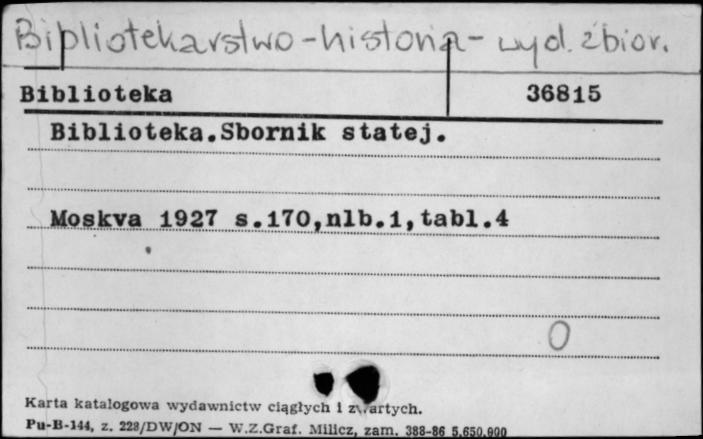 Bibliotekarstwo - historia - wyd. zbior.
Biblioteka 36815
Biblioteka.Sbornik statej.
Moskva 1927 s.170,nlb.1,tabl.4
O
Karta katalogowa wydawnictw ciągłych i zwartych.
Pu-B-144, z. 228/DW/ON — W.Z.Graf. Milicz, zam. 388-86 5.650.000